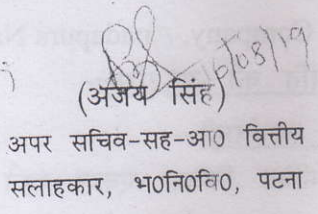 (अजय सिंह)
अपर सचिव-सह-आ0 वित्तीय
सलाहकार, भ0नि0वि0, पटना